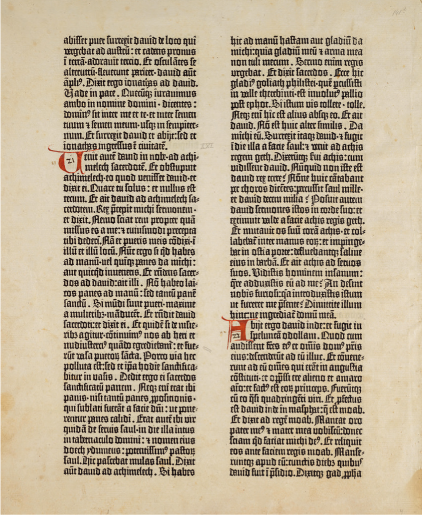 abisset puer surrexit david de loco qui
vergebat ad austrū: et cadens pronus
ī terrā-adoravit tercio. Et osculātes se
alterutrū-fleverunt pariter-david aūt
 āpli⁹. Dixit ergo ionathas ad david.
Vade in pace. Quecūq; iuravimus
ambo in nomine domini-dicentes:
domin⁹ sit inter me et te-et inter semen
tuum et semen meum-usq; in sempiter-
num. Et surrexit david et abijt: sed et
ionathas ingressus ē civitatē.
Venit autē david in nobe-ad achi-
melech sacerdotē. Et obstupuit
achimelech-eo quod venisset david-et
dixit ei. Quare tu solus: et nullus est
tecum. Et ait david ad achimelech sa-
cerdotem. Rex p̄cepit michi sermonem-
et dixit. Nemo sciat rem propter quā
missus es a me: et cuiusmodi precepta
tibi dederī. Nā et pueris meis cōdixi-ī
illū et illū locū. Nūc ergo si qd habes
ad manū-vel quīq; panes da michi:
aut quicqd inveneris. Et rn̄dens sacer-
dos ad david: ait illi. Nō habeo lai-
cos panes ad manū: sed tantū panē
sanctū. Si mūdi sunt pueri-maxime
a mulierib₉-māducēt. Et rn̄dit david
sacerdoti: et dixit ei. Et quidē si de mulie-
rib₉ agitur-cōtinuim⁹ nos ab heri et
nudiusterci⁹ quādo egrediebamur: et fue-
rūt vasa pueroꝝ sācta. Porro via hec
polluta est: sed et ip̄a hodie sanctifica-
bitur in vasis. Dedit ergo ei sacerdos
sanctificatū panem. Neq; enī erat ibi
panis-nisi tantū panes p̄posicionis-
qui sublati fuerāt a facie dn̄i: ut pone-
rentur panes calidi. Erat autē ibi vir
quidā de servis saul-in die illa intus
in tabernaculo domini: et nomen eius
doech ydumeus: potentissim⁹ pastoꝝ
saul. Hic pascebat mulas saul. Dixit
aūt david ad achimelech. Si habes
hic ad manū hastam aut gladiū da
michi: quia gladiū meū et arma mea
non tuli mecum. Sermo enim regis
urgebat. Et dixit sacerdos. Ecce hic
gladi⁹ goliath philistei-quē p̄cussisti
in valle therebinti-est involut⁹ pallio
post ephot. Si istum vis tollere-tolle.
Neq; enī hic est alius absq; eo. Et ait
david. Nō est huic alter similis. Da
michi eū. Surrexit itaq; david et fugit
ī die illa a facie saul: et venit ad achis
regem geth. Dixerūtq; servi achis: cum
vidissent david. Nūquid non iste est
david rex terre? Nōne huic cātabant
per choros dicētes: percussit saul mille-
et david decem milia? Posuit autem
david sermones istos in corde suo: et
extimuit valde a facie achis regis geth.
Et mutavit os suū corā achis-et col-
labebat⁹ inter manus eoꝝ: et impinge-
bat in ostia porte: defluebantq; salive
eius in barbā. Et ait achis ad servos
suos. Vidistis hominem insanum:
quare adduxistis eū ad me? An desunt
nobis furiosi: quia introduxistis istum
ut fureret me p̄sente? Dimittite illum
hinc: ne ingrediat⁹ domū meā.
Abijt ergo david inde: et fugit in
speluncā odollam. Quod cum
audissent fr̄es ei⁹ et omnis dom⁹ pr̄is
eius: descenderūt ad eū illuc. Et cōvene-
runt ad eū om̄es qui erāt in angustia
cōstituti-et opp̄ssi ere alieno et amaro
aīo: et fact⁹ est eoꝝ princeps. Fuerūtq;
cū eo q̄si quadringēti viri. Et p̄fectus
est david inde in masphat: q̄ est moab.
Et dixit ad regē moab. Maneat oro
pater me⁹ et mater mea vobiscū: donec
sciam qd faciat michi de⁹. Et reliquit
eos ante faciem regis moab. Manse-
runtq; apud eū: cunctis dieb₉ quibus
david fuit ī p̄sidio. Dixitq; gad p̄pha